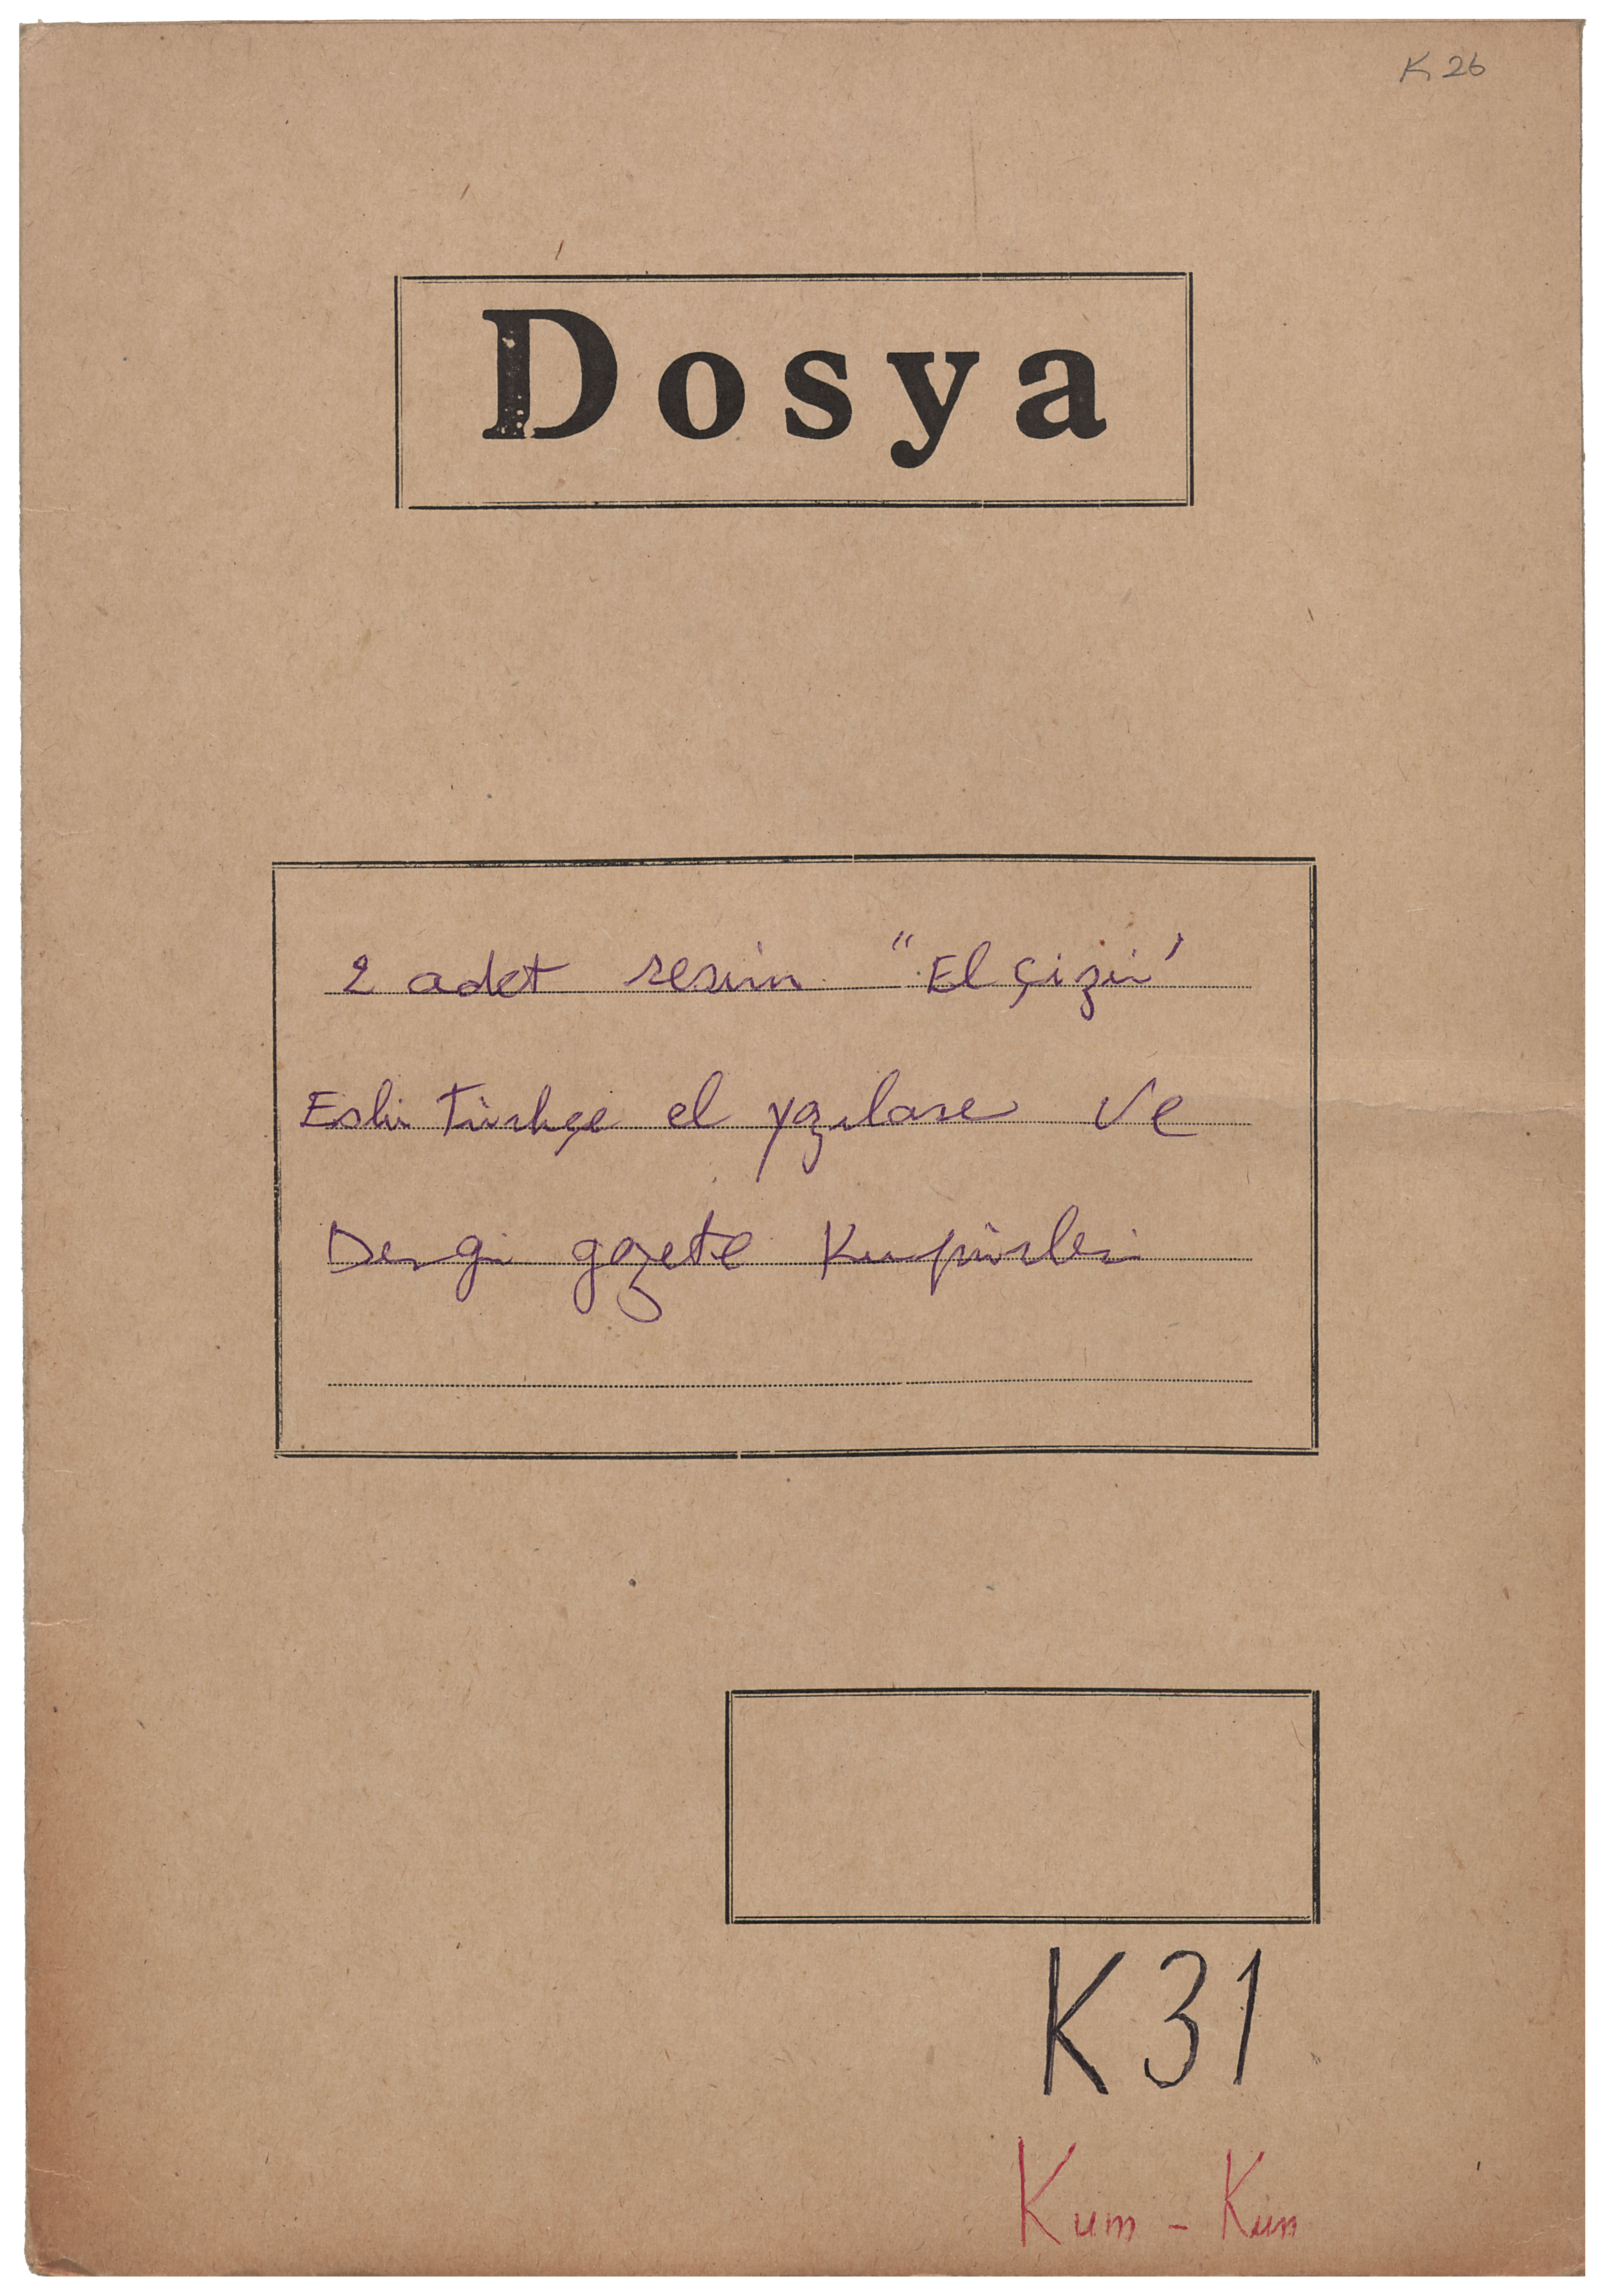 K 26
Dosya
2 adet resim "El çizir'
Eski Türkçe el yazıları ve
Dergi gazete Kupürleri
K31
Kum - Kun